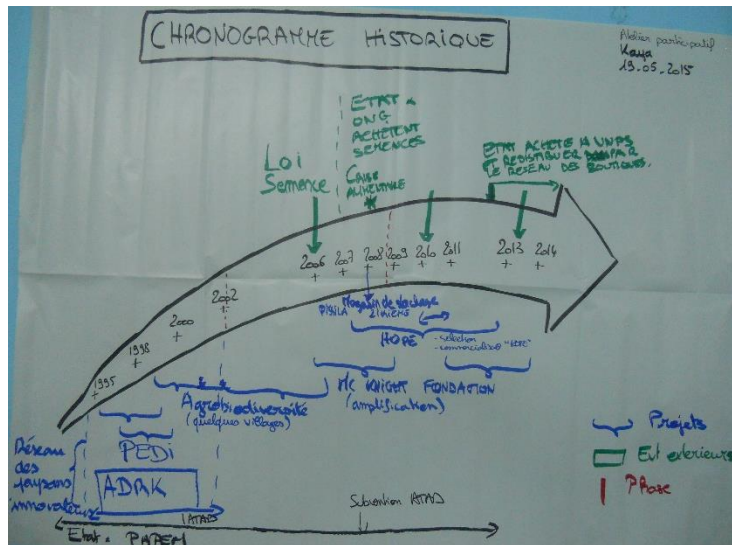 CHRONOGRAMME HISTORIQUE
Atelier participatif
Kaya
19-05-2015
ETAT &
ONG
ACHETENT
SEMENCES
CRISE
ALIMENTAIRE
Loi
Semence
ETAT ACHETE A UNPS
ET REDISTRIBUER PAR
LE RESEAU DES BOUTIQUES.
1995
1998
2000
2002
2006
2007
2008
2009
2010
2011
2013
2014
Magasin de stockage
PISSILA
HOPE
- sélection
Mc KNIGHT FONDATION
(amplification)
Agrobiodiversité
(quelques villages)
PEDI
ADRK
Réseau
des
paysans
innovateurs
IATADS
Subvention IATAD
Etat. PAPEM
Projets
Evt exterieurs
Phase